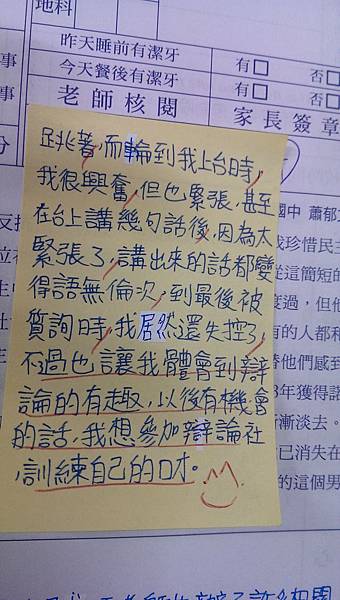 地科
昨天睡前有潔牙 有□ 否□
今天餐後有潔牙 有□ 否□
事
老師核閱 家長簽章
跳著,而輪到我上台時,
我很興奮,但也緊張,甚至
在台上講幾句話後,因為太
緊張了,講出來的話都變
得語無倫次,到最後被
質詢時,我居然還失控了,
不過也讓我體會到辯
論的有趣,以後有機會
的話,我想參加辯論社
,訓練自己的口才。
國中 蕭郁
我珍惜民主
從這簡短的
度過,但他
有的人都和
替他們感到
年獲得諾
漸淡去。
已消失在
的這個男